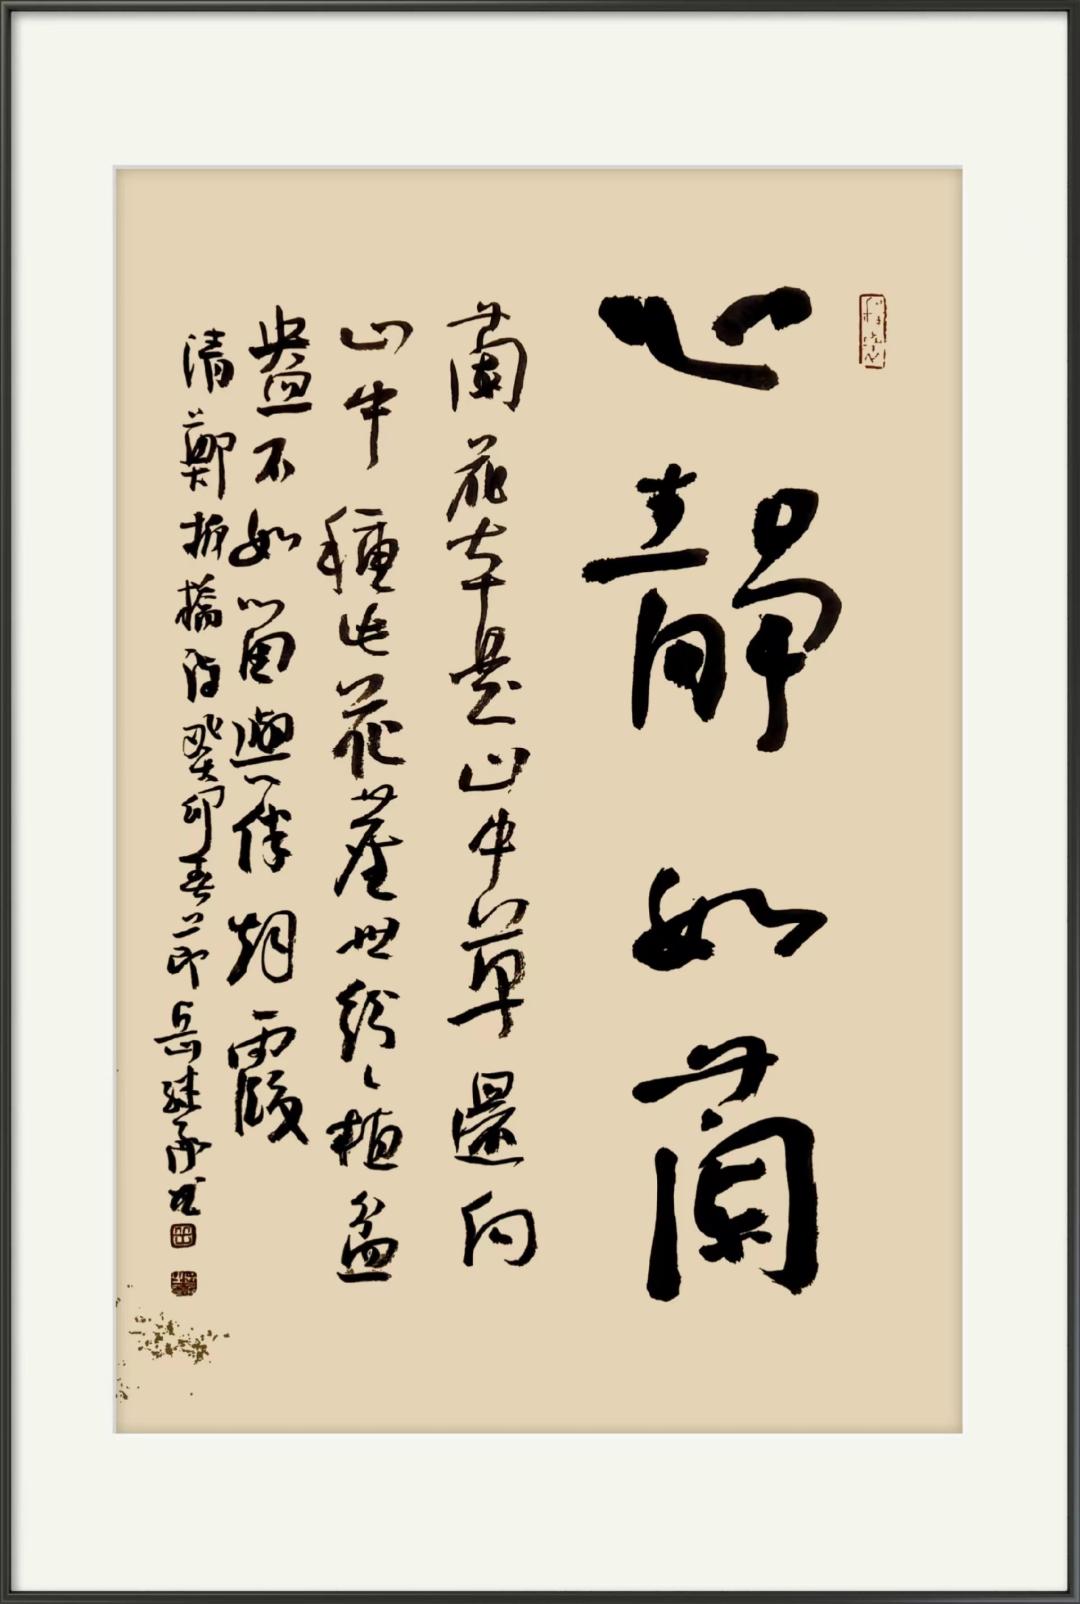 心靜如蘭
蘭花本是山中草還向
山中種此花塵世紛〻植盆
盎不如留與伴烟霞
清鄭板橋詩癸卯春節岳继承书